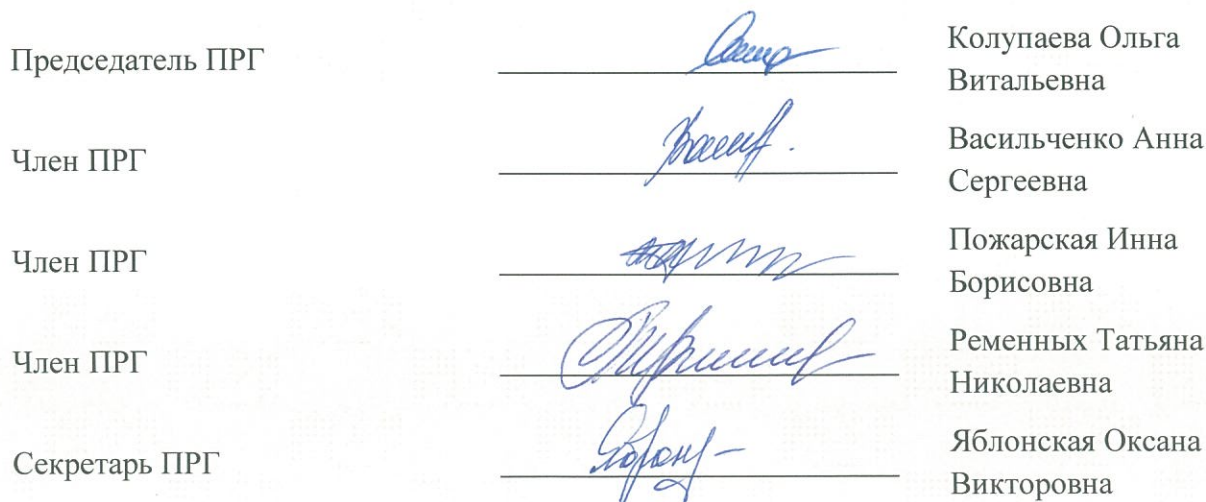 Председатель ПРГ
Колупаева Ольга
Витальевна
Член ПРГ
Васильченко Анна
Сергеевна
Член ПРГ
Пожарская Инна
Борисовна
Член ПРГ
Ременных Татьяна
Николаевна
Секретарь ПРГ
Яблонская Оксана
Викторовна